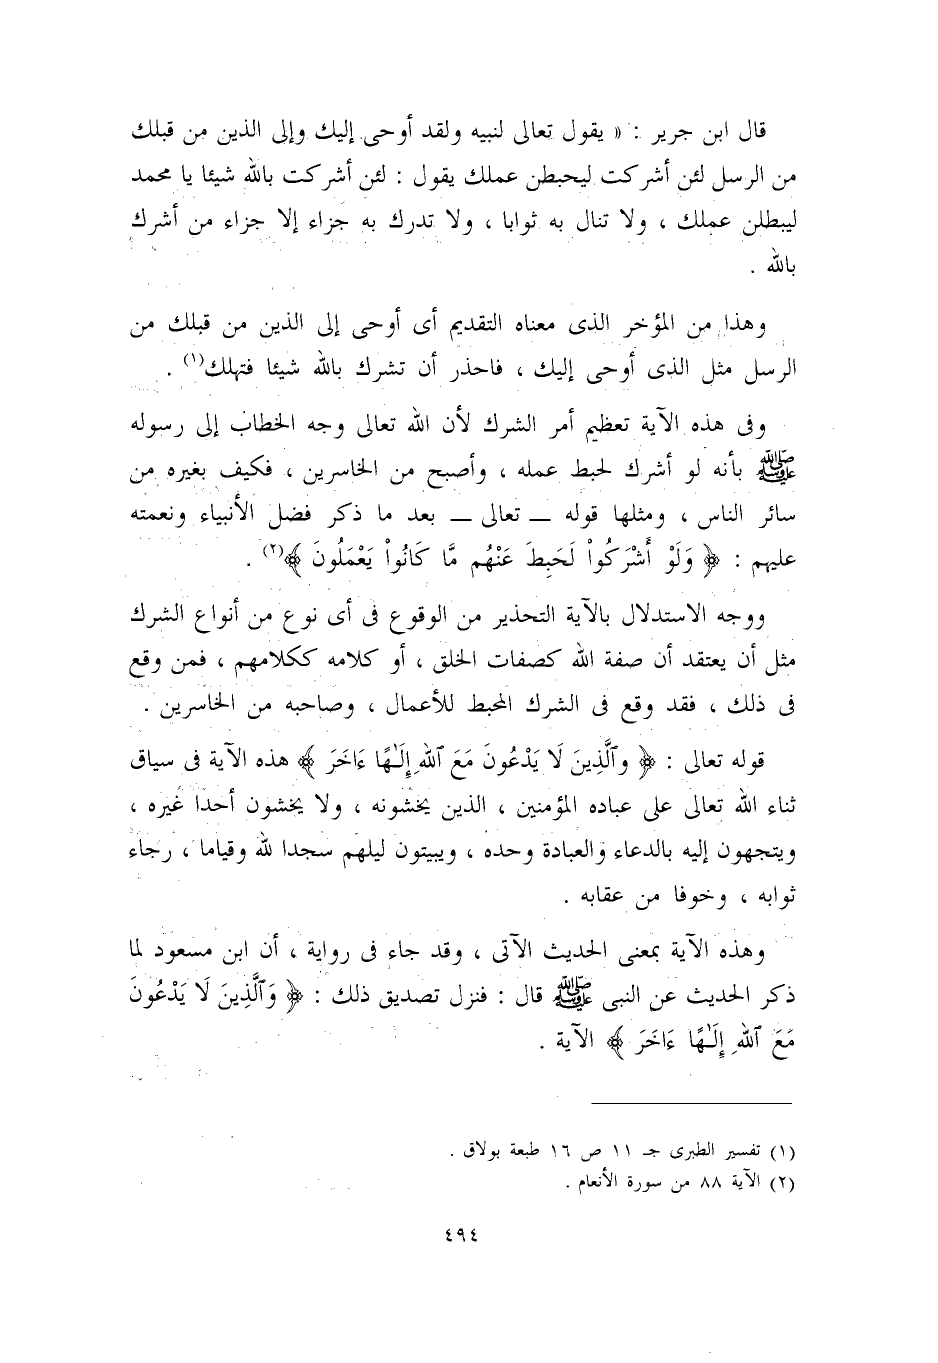 قال ابن جرير : « يقول تعالى لنبيه ولقد أوحى إليك وإلى الذين من قبلك
من الرسل لئن أشركت ليحبطن عملك يقول : لئن أشركت بالله شيئا يا محمد
ليبطلن عملك ، ولا تنال به ثوابا ، ولا تدرك به جزاء إلا جزاء من أشرك
بالله .
وهذا من المؤخر الذى معناه التقديم أى أوحى إلى الذين من قبلك من
الرسل مثل الذى أوحى إليك ، فاحذر أن تشرك بالله شيئا فتهلك(١) .
وفى هذه الآية تعظيم أمر الشرك لأن الله تعالى وجه الخطاب إلى رسوله
ﷺ بأنه لو أشرك لحبط عمله ، وأصبح من الخاسرين ، فكيف بغيره من
سائر الناس ، ومثلها قوله ــ تعالى ــ بعد ما ذكر فضل الأنبياء ونعمته
عليهم : ﴿ وَلَوْ أَشْرَكُواْ لَحَبِطَ عَنْهُم مَّا كَانُواْ يَعْمَلُونَ ﴾(٢) .
ووجه الاستدلال بالآية التحذير من الوقوع فى أى نوع من أنواع الشرك
مثل أن يعتقد أن صفة الله كصفات الخلق ، أو كلامه ككلامهم ، فمن وقع
فى ذلك ، فقد وقع فى الشرك المحبط للأعمال ، وصاحبه من الخاسرين .
قوله تعالى : ﴿ وٱلَّذِينَ لَا يَدْعُونَ مَعَ ٱللهِ إِلَـٰهًا ءَاخَرَ ﴾ هذه الآية فى سياق
ثناء الله تعالى على عباده المؤمنين ، الذين يخشونه ، ولا يخشون أحدا غيره ،
ويتجهون إليه بالدعاء والعبادة وحده ، ويبيتون ليلهم سجدا لله وقياما ، رجاء
ثوابه ، وخوفا من عقابه .
وهذه الآية بمعنى الحديث الآتى ، وقد جاء فى رواية ، أن ابن مسعود لما
ذكر الحديث عن النبى ﷺ قال : فنزل تصديق ذلك : ﴿ وَٱلَّذِينَ لَا يَدْعُونَ
مَعَ ٱللهِ إِلَـٰهًا ءَاخَرَ ﴾ الآية .
(١) تفسير الطبرى جـ ١١ ص ١٦ طبعة بولاق .
(٢) الآية ٨٨ من سورة الأنعام .
٤٩٤